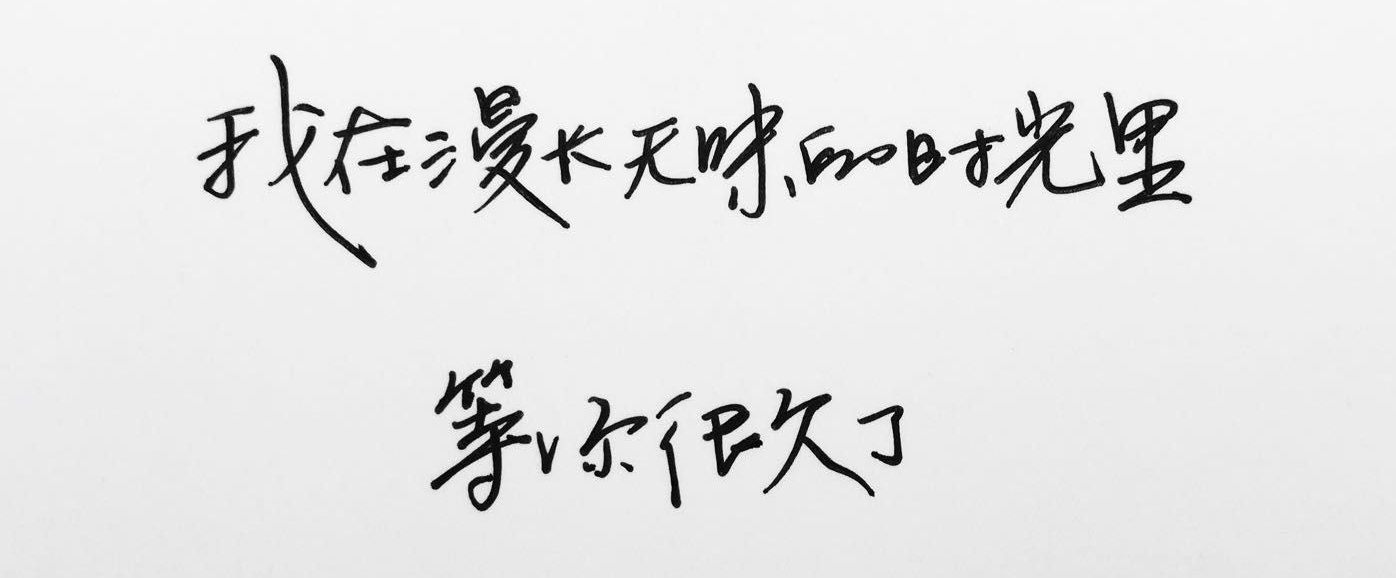 我在漫长无味的时光里
等你很久了